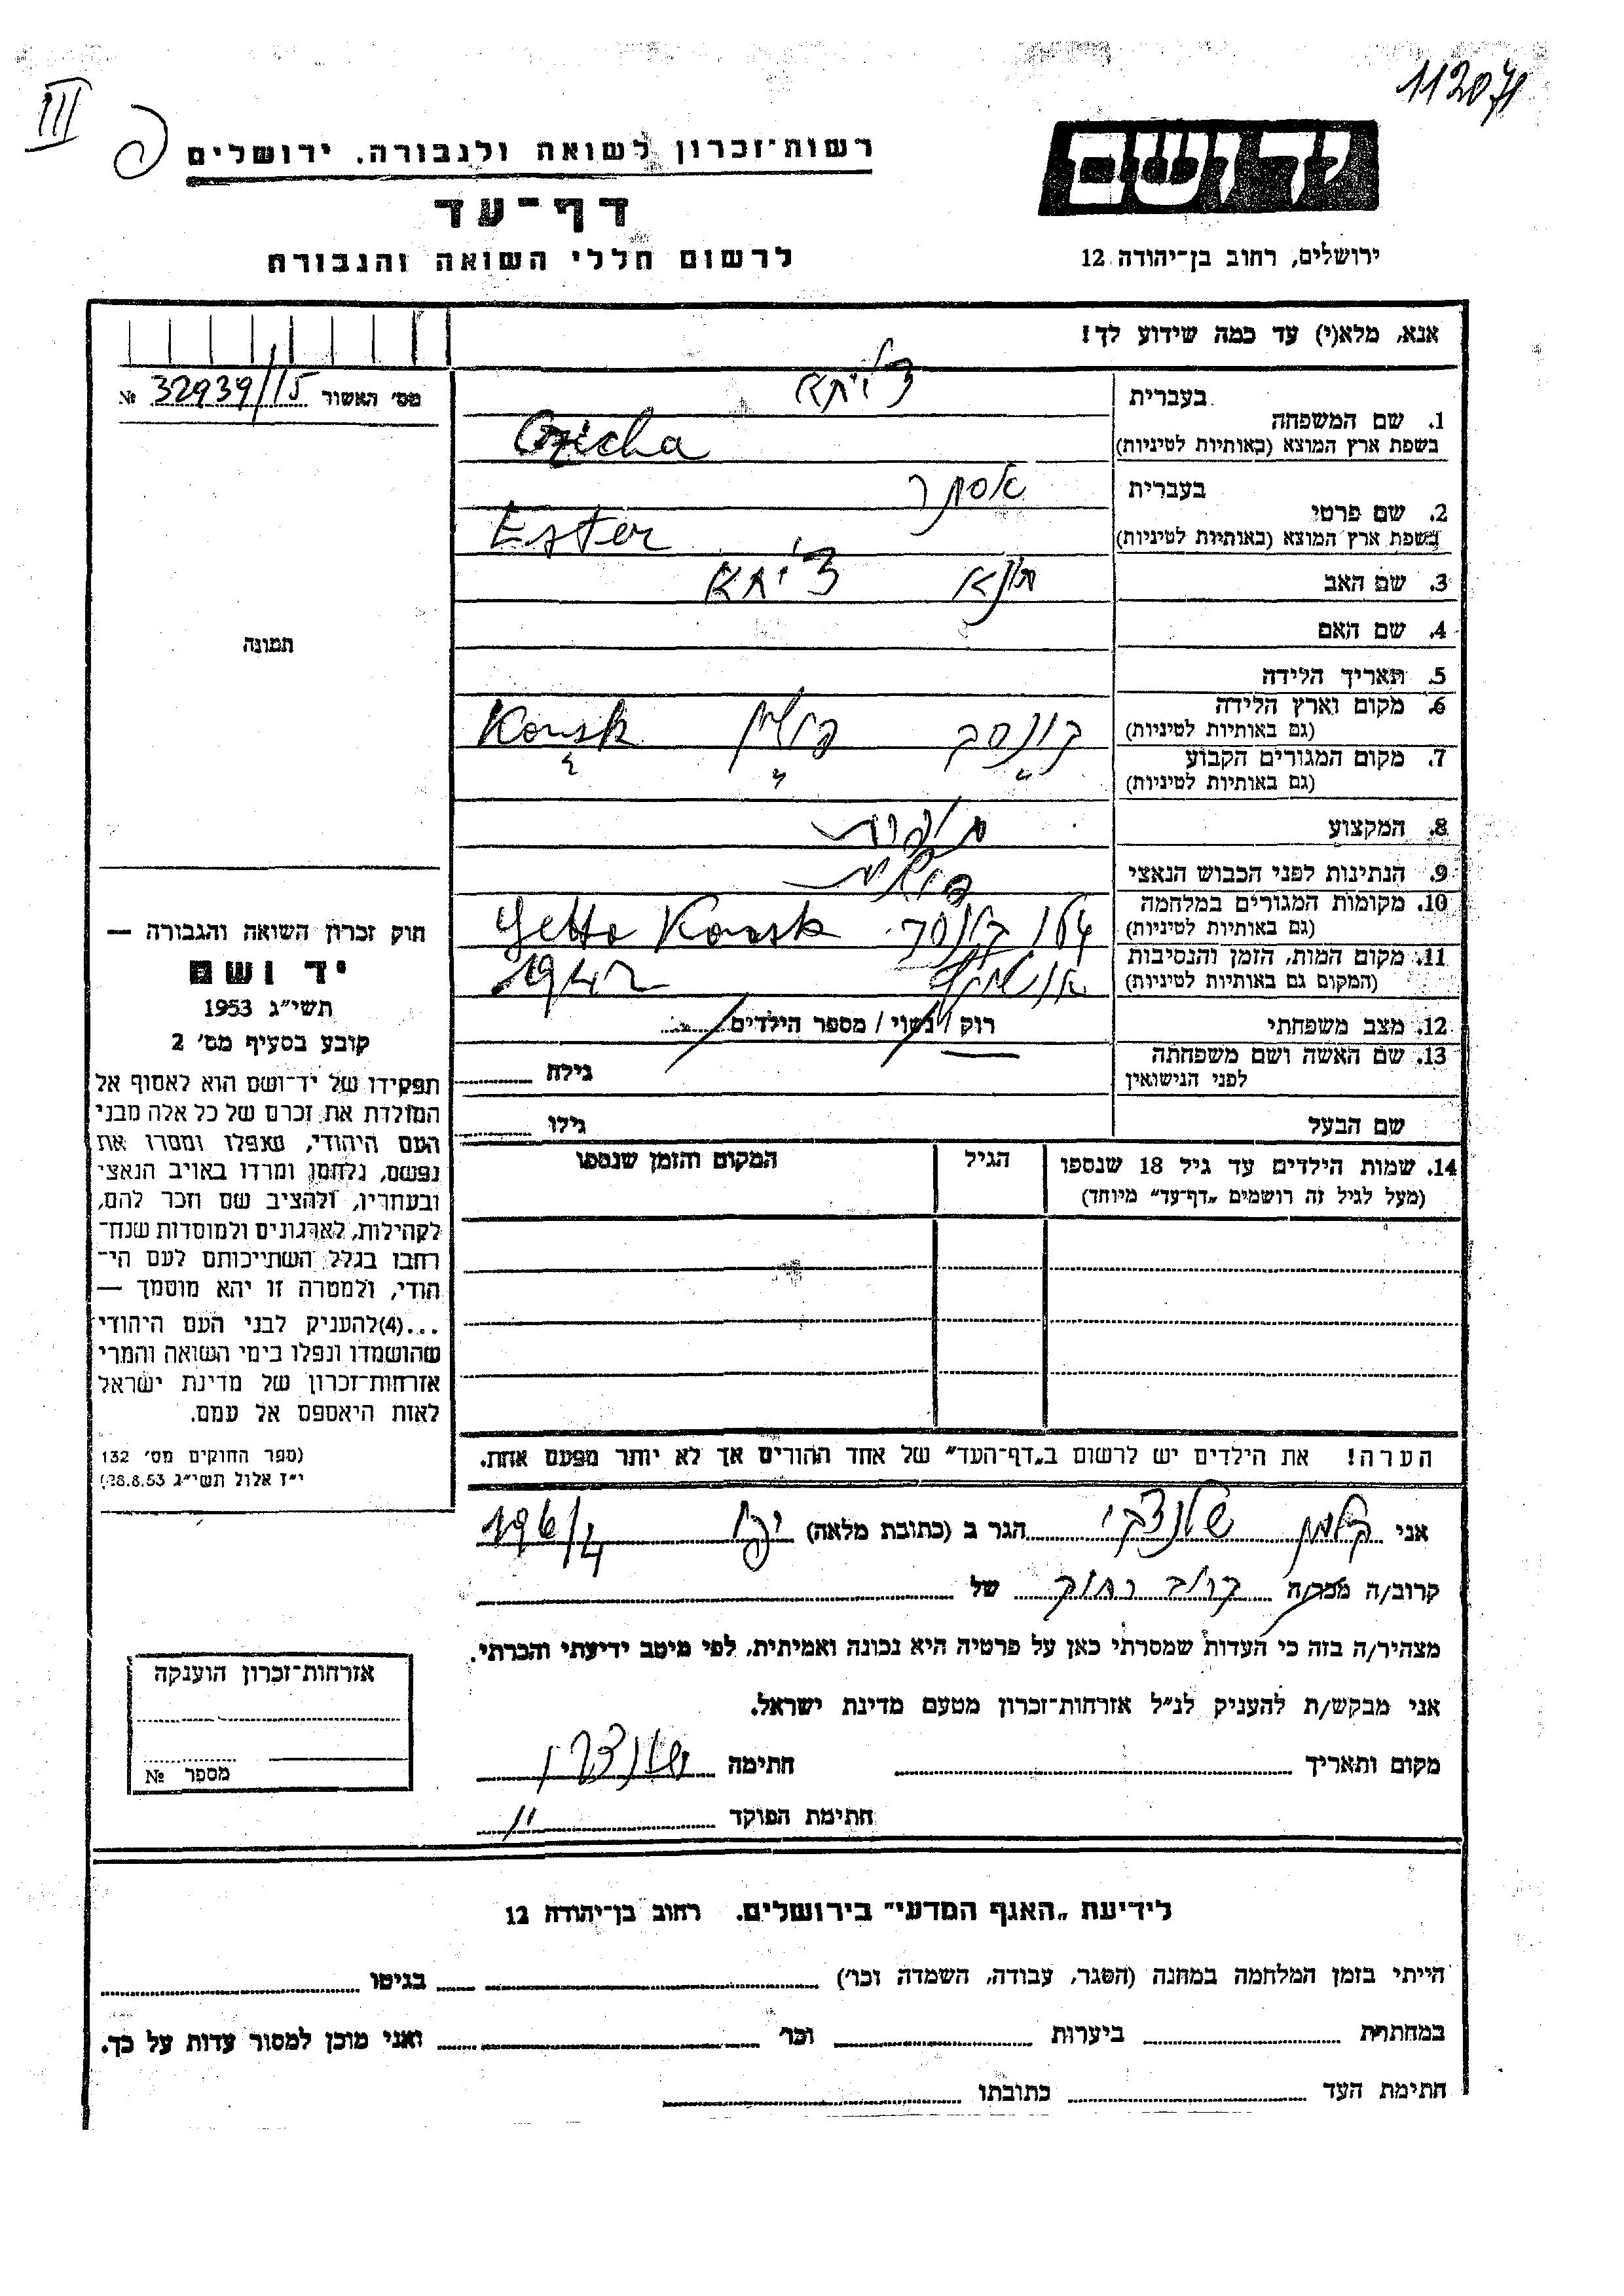 112071
III
רשות־זכרון לשואה ולגבורה. ירושלים
ידושם
דף־עד
לרשום חללי השואה והגבורה
ירושלים, רחוב בן־יהודה 12
אנא, מלא(י) עד כמה שידוע לך!
מס' האשור 32939/15 №
בעברית
1. שם המשפחה
בשפת ארץ המוצא (באותיות לטיניות)
בעברית אסתר
2. שם פרטי
בשפת ארץ המוצא (באותיות לטיניות) Ester
3. שם האב
4. שם האם
תמונה
5. תאריך הלידה
6. מקום וארץ הלידה פולין Konsk
(גם באותיות לטיניות)
7. מקום המגורים הקבוע " " "
(גם באותיות לטיניות)
8. המקצוע
9. הנתינות לפני הכבוש הנאצי פולנית
10. מקומות המגורים במלחמה Getto Konsk
(גם באותיות לטיניות)
11. מקום המות, הזמן והנסיבות 1942
(המקום גם באותיות לטיניות)
12. מצב משפחתי רוק / נשוי / מספר הילדים
13. שם האשה ושם משפחתה
לפני הנישואין גילה
שם הבעל גילו
14. שמות הילדים עד גיל 18 שנספו הגיל המקום והזמן שנספו
(מעל לגיל זה רושמים „דף־עד" מיוחד)
חוק זכרון השואה והגבורה —
יד ושם
תשי"ג 1953
קובע בסעיף מס' 2
תפקידו של יד־ושם הוא לאסוף אל
המולדת את זכרם של כל אלה מבני
העם היהודי, שנפלו ומסרו את
נפשם, נלחמו ומרדו באויב הנאצי
ובעוזריו, ולהציב שם וזכר להם,
לקהילות, לארגונים ולמוסדות שנח־
רבו בגלל השתייכותם לעם הי־
הודי, ולמטרה זו יהא מוסמך —
...(4)להעניק לבני העם היהודי
שהושמדו ונפלו בימי השואה והמרי
אזרחות־זכרון של מדינת ישראל
לאות היאספם אל עמם.
(ספר החוקים מס' 132
י"ז אלול תשי"ג 28.8.53)
הערה! את הילדים יש לרשום ב„דף־העד" של אחד ההורים אך לא יותר מפעם אחת.
אני הגר ב (כתובת מלאה) יפו 196/4
קרוב/ה מכר/ה קרוב רחוק של
מצהיר/ה בזה כי העדות שמסרתי כאן על פרטיה היא נכונה ואמיתית, לפי מיטב ידיעתי והכרתי.
אני מבקש/ת להעניק לנ"ל אזרחות־זכרון מטעם מדינת ישראל.
מקום ותאריך חתימה
חתימת הפוקד
אזרחות־זכרון הוענקה
מספר №
לידיעת „האגף המדעי" בירושלים. רחוב בן־יהודה 12
הייתי בזמן המלחמה במחנה (הסגר, עבודה, השמדה וכו') בגיטו
במחתרת ביערות וכו' ואני מוכן למסור עדות על כך.
חתימת העד כתובתו